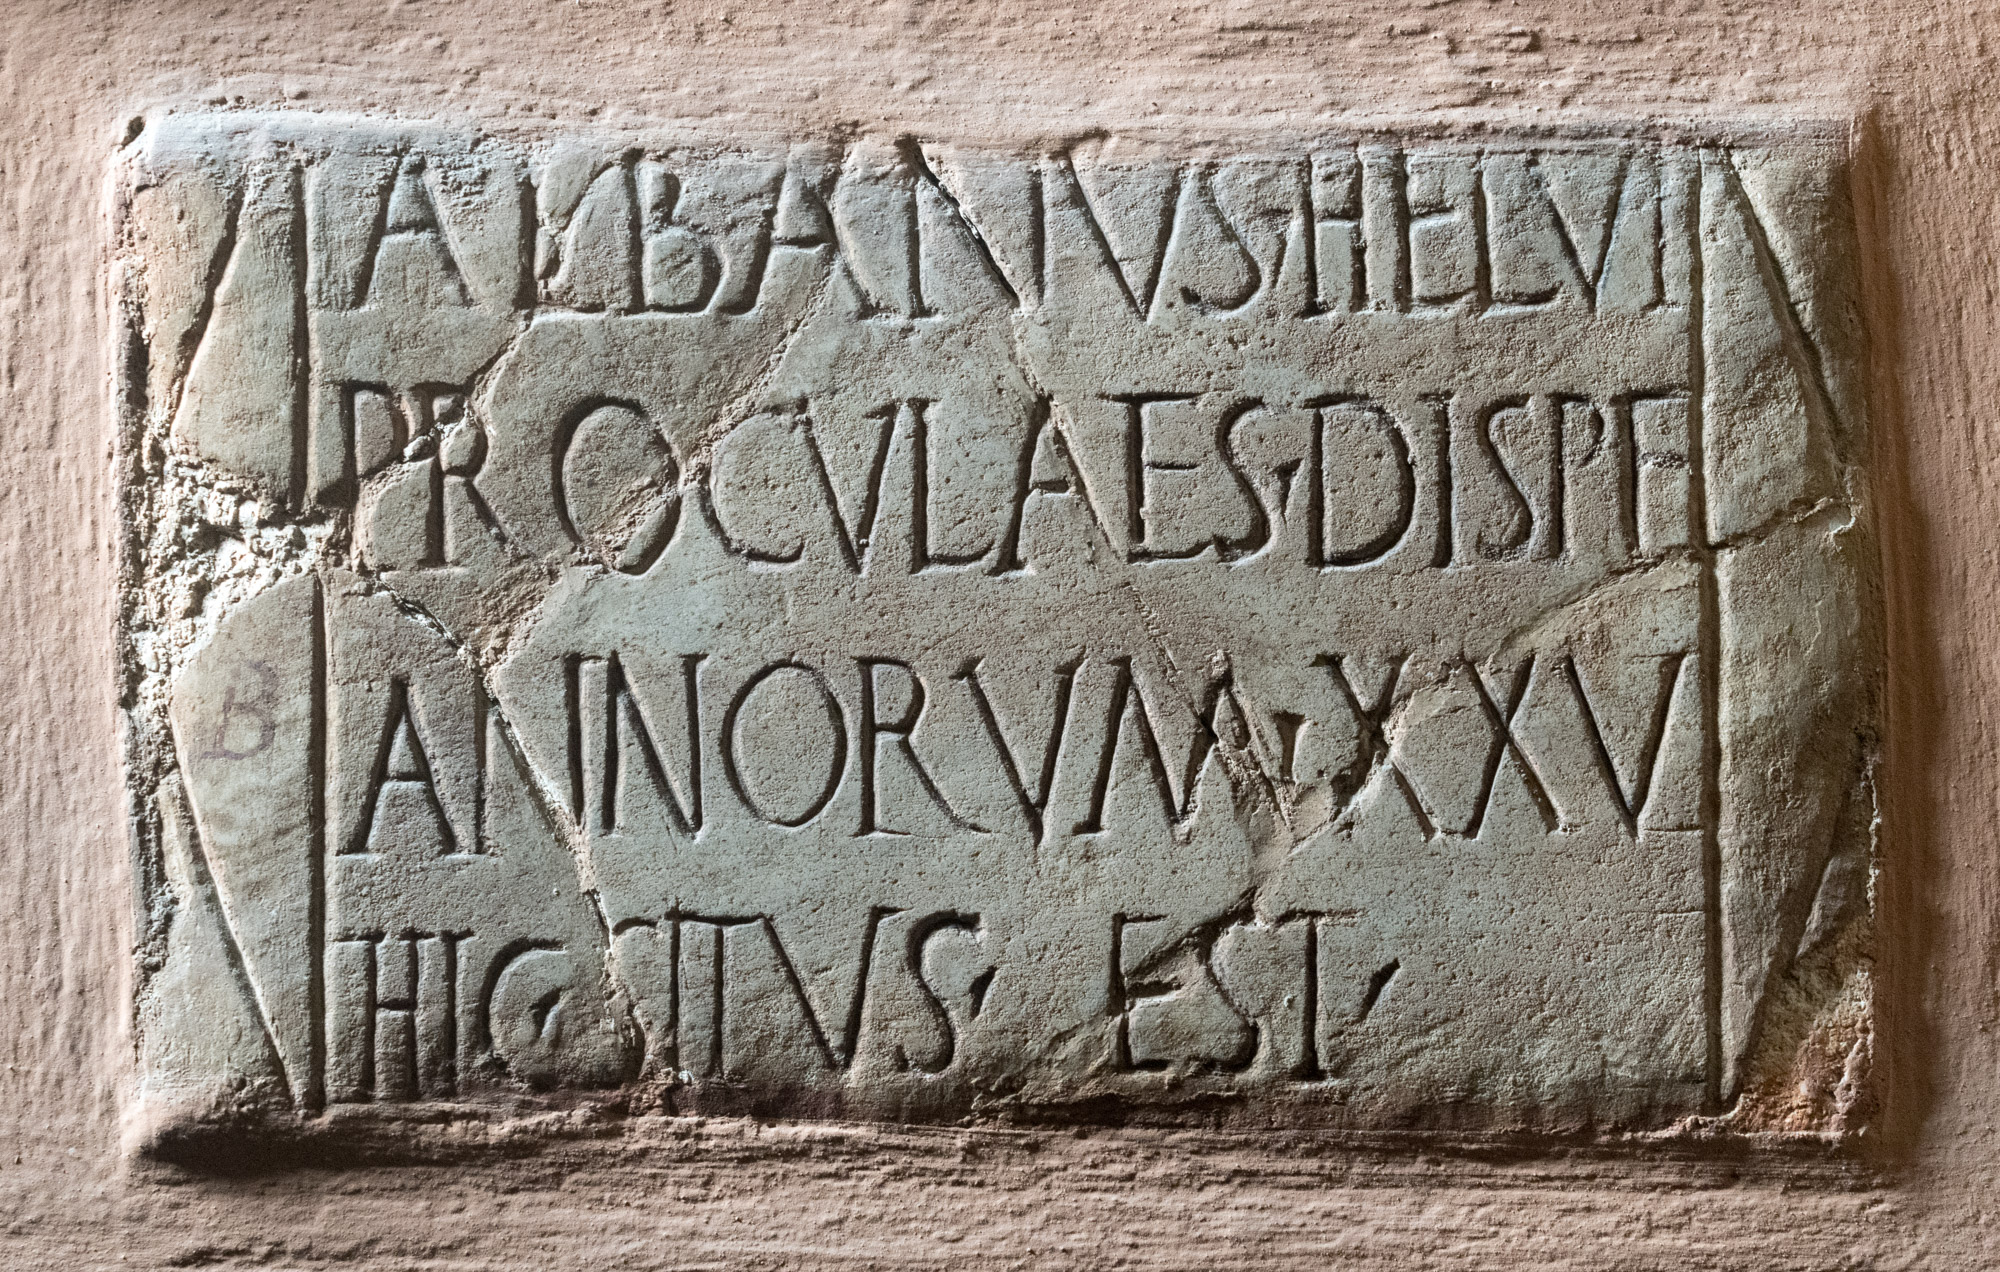 ALBANVS·HELVI
PROCVLAES·DISPE
ANNORVM·XXV
HIC·SITVS· EST·
B